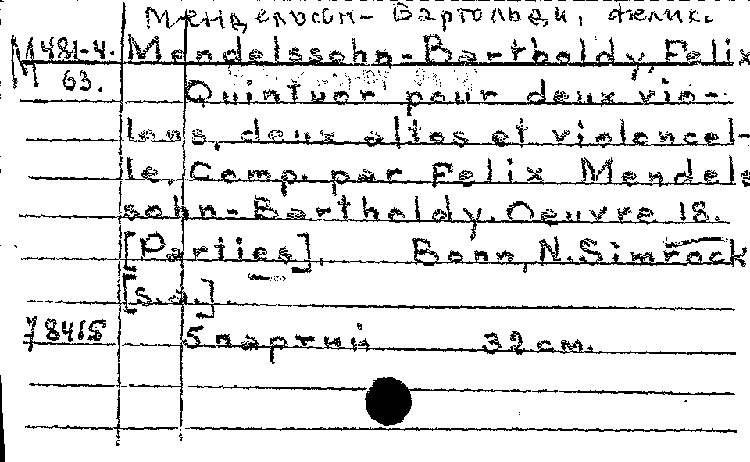 Мендельсон-Бартольди, Феликс.
М 481-4. Mendelssohn-Bartholdy, Felix
М 63.
Quintuor pour deux vio-
lons, deux altos et violoncel-
le. Comp. par Felix Mendels
sohn-Bartholdy. Oeuvre 18.
[Parties]. Bonn, N. Simrock
[s.a.].
78415 5 партий 32 см.